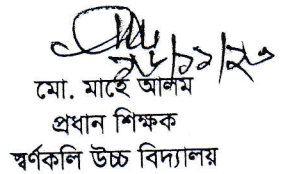 মো. মাহে আলম
প্রধান শিক্ষক
স্বর্ণকলি উচ্চ বিদ্যালয়